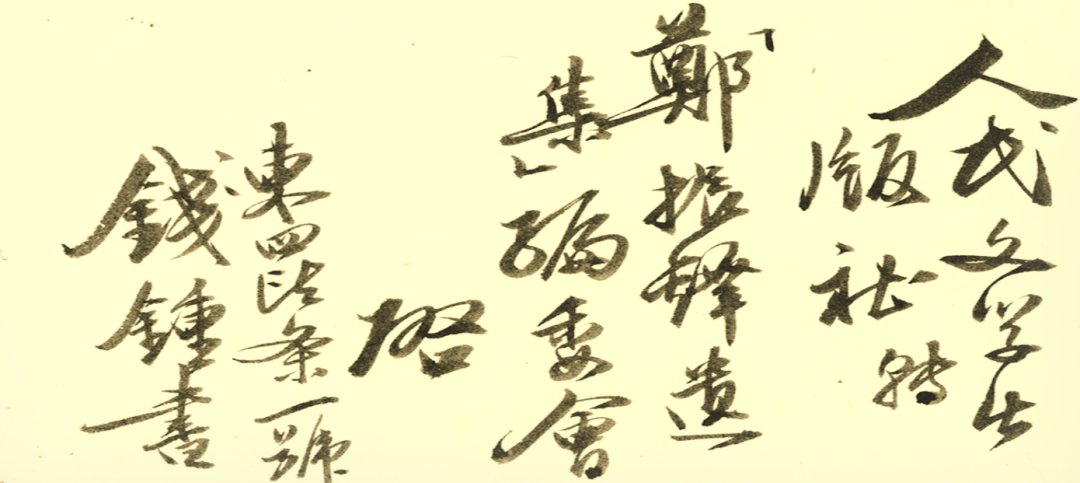 人民文学出
版社轉
「鄭振鐸遺
集」編委會
啓
東四頭条一號
錢鍾書